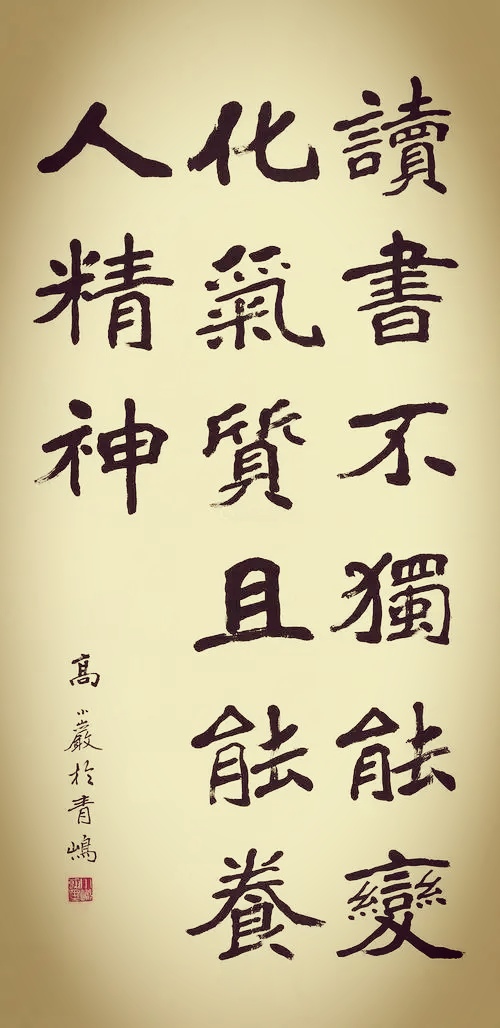 讀書不獨能變
化氣質且能養
人精神
高小巖於青嶋